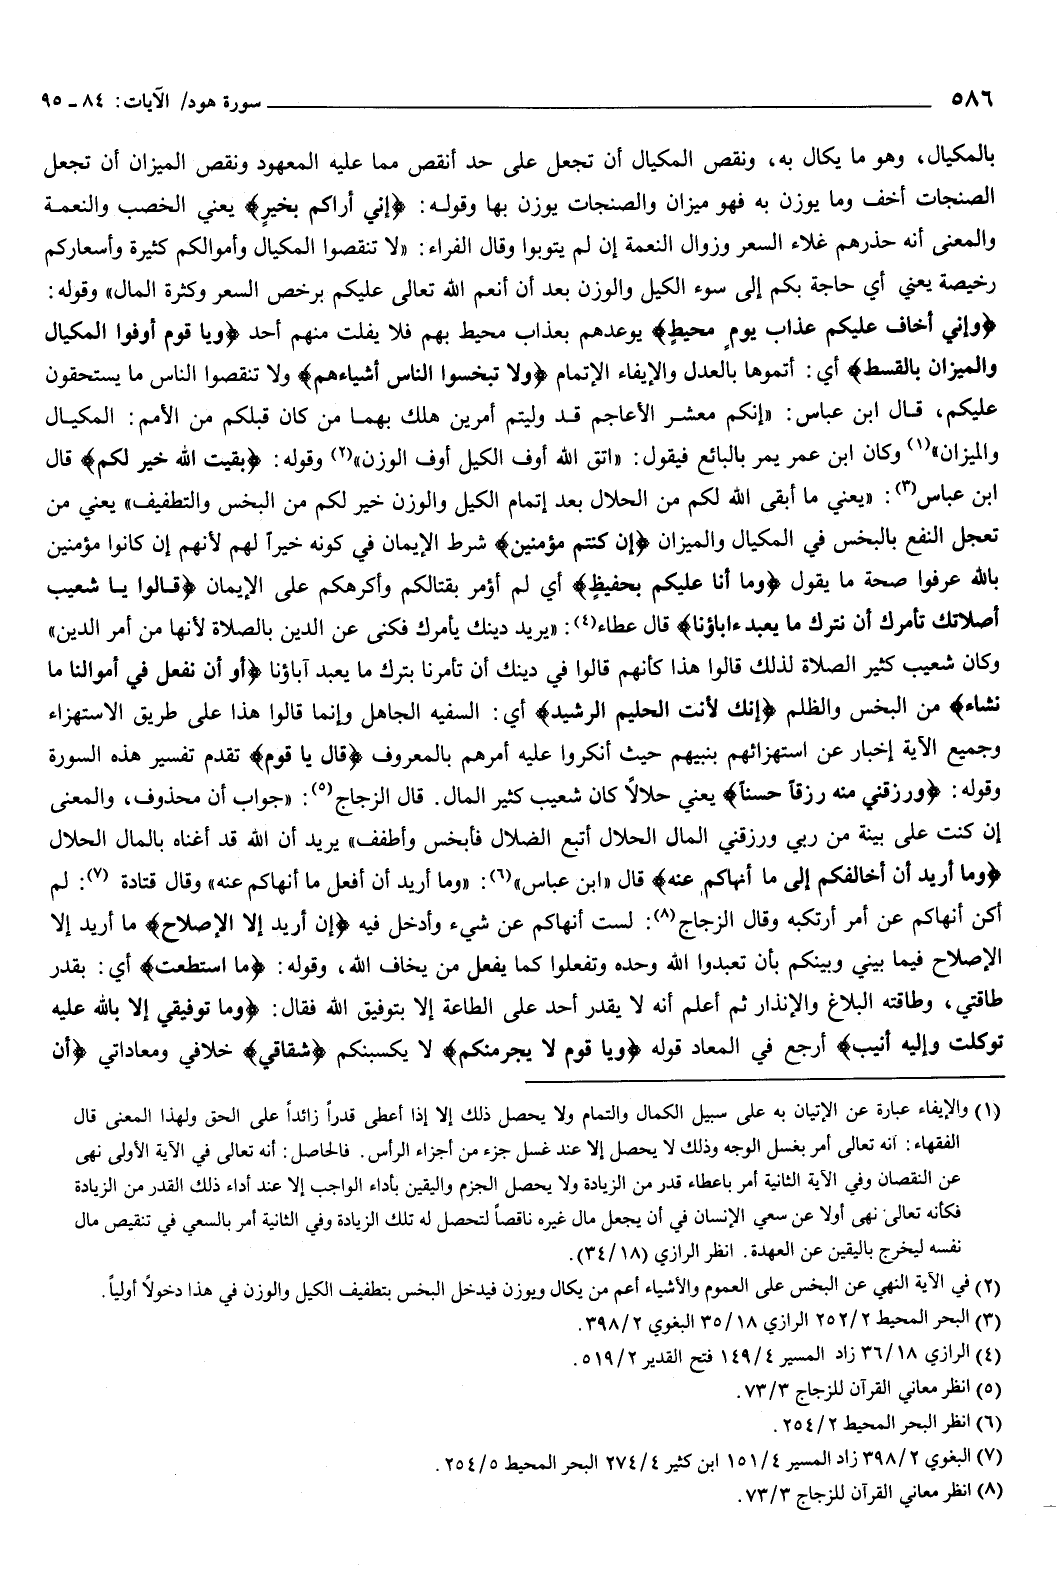 ٥٨٦ سورة هود/ الآيات: ٨٤ ـ ٩٥
بالمكيال، وهو ما يكال به، ونقص المكيال أن تجعل على حد أنقص مما عليه المعهود ونقص الميزان أن تجعل
الصنجات أخف وما يوزن به فهو ميزان والصنجات يوزن بها وقوله: ﴿إني أراكم بخيرٍ﴾ يعني الخصب والنعمة
والمعنى أنه حذرهم غلاء السعر وزوال النعمة إن لم يتوبوا وقال الفراء: «لا تنقصوا المكيال وأموالكم كثيرة وأسعاركم
رخيصة يعني أي حاجة بكم إلى سوء الكيل والوزن بعد أن أنعم الله تعالى عليكم برخص السعر وكثرة المال» وقوله:
﴿وإني أخاف عليكم عذاب يومٍ محيطٍ﴾ يوعدهم بعذاب محيط بهم فلا يفلت منهم أحد ﴿ويا قوم أوفوا المكيال
والميزان بالقسط﴾ أي: أتموها بالعدل والإيفاء الإتمام ﴿ولا تبخسوا الناس أشياءهم﴾ ولا تنقصوا الناس ما يستحقون
عليكم، قال ابن عباس: «إنكم معشر الأعاجم قد وليتم أمرين هلك بهما من كان قبلكم من الأمم: المكيال
والميزان»(١) وكان ابن عمر يمر بالبائع فيقول: «اتق الله أوف الكيل أوف الوزن»(٢) وقوله: ﴿بقيت الله خير لكم﴾ قال
ابن عباس(٣): «يعني ما أبقى الله لكم من الحلال بعد إتمام الكيل والوزن خير لكم من البخس والتطفيف» يعني من
تعجل النفع بالبخس في المكيال والميزان ﴿إن كنتم مؤمنين﴾ شرط الإيمان في كونه خيراً لهم لأنهم إن كانوا مؤمنين
بالله عرفوا صحة ما يقول ﴿وما أنا عليكم بحفيظٍ﴾ أي لم أؤمر بقتالكم وأكرهكم على الإيمان ﴿قالوا يا شعيب
أصلاتك تأمرك أن نترك ما يعبد ءاباؤنا﴾ قال عطاء(٤): «يريد دينك يأمرك فكنى عن الدين بالصلاة لأنها من أمر الدين»
وكان شعيب كثير الصلاة لذلك قالوا هذا كأنهم قالوا في دينك أن تأمرنا بترك ما يعبد آباؤنا ﴿أو أن نفعل في أموالنا ما
نشاء﴾ من البخس والظلم ﴿إنك لأنت الحليم الرشيد﴾ أي: السفيه الجاهل وإنما قالوا هذا على طريق الاستهزاء
وجميع الآية إخبار عن استهزائهم بنبيهم حيث أنكروا عليه أمرهم بالمعروف ﴿قال يا قوم﴾ تقدم تفسير هذه السورة
وقوله: ﴿ورزقني منه رزقاً حسناً﴾ يعني حلالاً كان شعيب كثير المال. قال الزجاج(٥): «جواب أن محذوف، والمعنى
إن كنت على بينة من ربي ورزقني المال الحلال أتبع الضلال فأبخس وأطفف» يريد أن الله قد أغناه بالمال الحلال
﴿وما أريد أن أخالفكم إلى ما أنهاكم عنه﴾ قال «ابن عباس»(٦): «وما أريد أن أفعل ما أنهاكم عنه» وقال قتادة (٧): لم
أكن أنهاكم عن أمر أرتكبه وقال الزجاج(٨): لست أنهاكم عن شيء وأدخل فيه ﴿إن أريد إلا الإصلاح﴾ ما أريد إلا
الإصلاح فيما بيني وبينكم بأن تعبدوا الله وحده وتفعلوا كما يفعل من يخاف الله، وقوله: ﴿ما استطعت﴾ أي: بقدر
طاقتي، وطاقته البلاغ والإنذار ثم أعلم أنه لا يقدر أحد على الطاعة إلا بتوفيق الله فقال: ﴿وما توفيقي إلا بالله عليه
توكلت وإليه أنيب﴾ أرجع في المعاد قوله ﴿ويا قوم لا يجرمنكم﴾ لا يكسبنكم ﴿شقاقي﴾ خلافي ومعاداتي ﴿أن
(١) والإيفاء عبارة عن الإتيان به على سبيل الكمال والتمام ولا يحصل ذلك إلا إذا أعطى قدراً زائداً على الحق ولهذا المعنى قال
الفقهاء: أنه تعالى أمر بغسل الوجه وذلك لا يحصل إلا عند غسل جزء من أجزاء الرأس. فالحاصل: أنه تعالى في الآية الأولى نهى
عن النقصان وفي الآية الثانية أمر باعطاء قدر من الزيادة ولا يحصل الجزم واليقين بأداء الواجب إلا عند أداء ذلك القدر من الزيادة
فكأنه تعالى نهى أولا عن سعي الإنسان في أن يجعل مال غيره ناقصاً لتحصل له تلك الزيادة وفي الثانية أمر بالسعي في تنقيص مال
نفسه ليخرج باليقين عن العهدة. انظر الرازي (٣٤/١٨).
(٢) في الآية النهي عن البخس على العموم والأشياء أعم من يكال ويوزن فيدخل البخس بتطفيف الكيل والوزن في هذا دخولاً أولياً.
(٣) البحر المحيط ٢٥٢/٢ الرازي ٣٥/١٨ البغوي ٣٩٨/٢.
(٤) الرازي ٣٦/١٨ زاد المسير ١٤٩/٤ فتح القدير ٥١٩/٢.
(٥) انظر معاني القرآن للزجاج ٧٣/٣.
(٦) انظر البحر المحيط ٢٥٤/٢.
(٧) البغوي ٣٩٨/٢ زاد المسير ١٥١/٤ ابن كثير ٢٧٤/٤ البحر المحيط ٢٥٤/٥.
(٨) انظر معاني القرآن للزجاج ٧٣/٣.